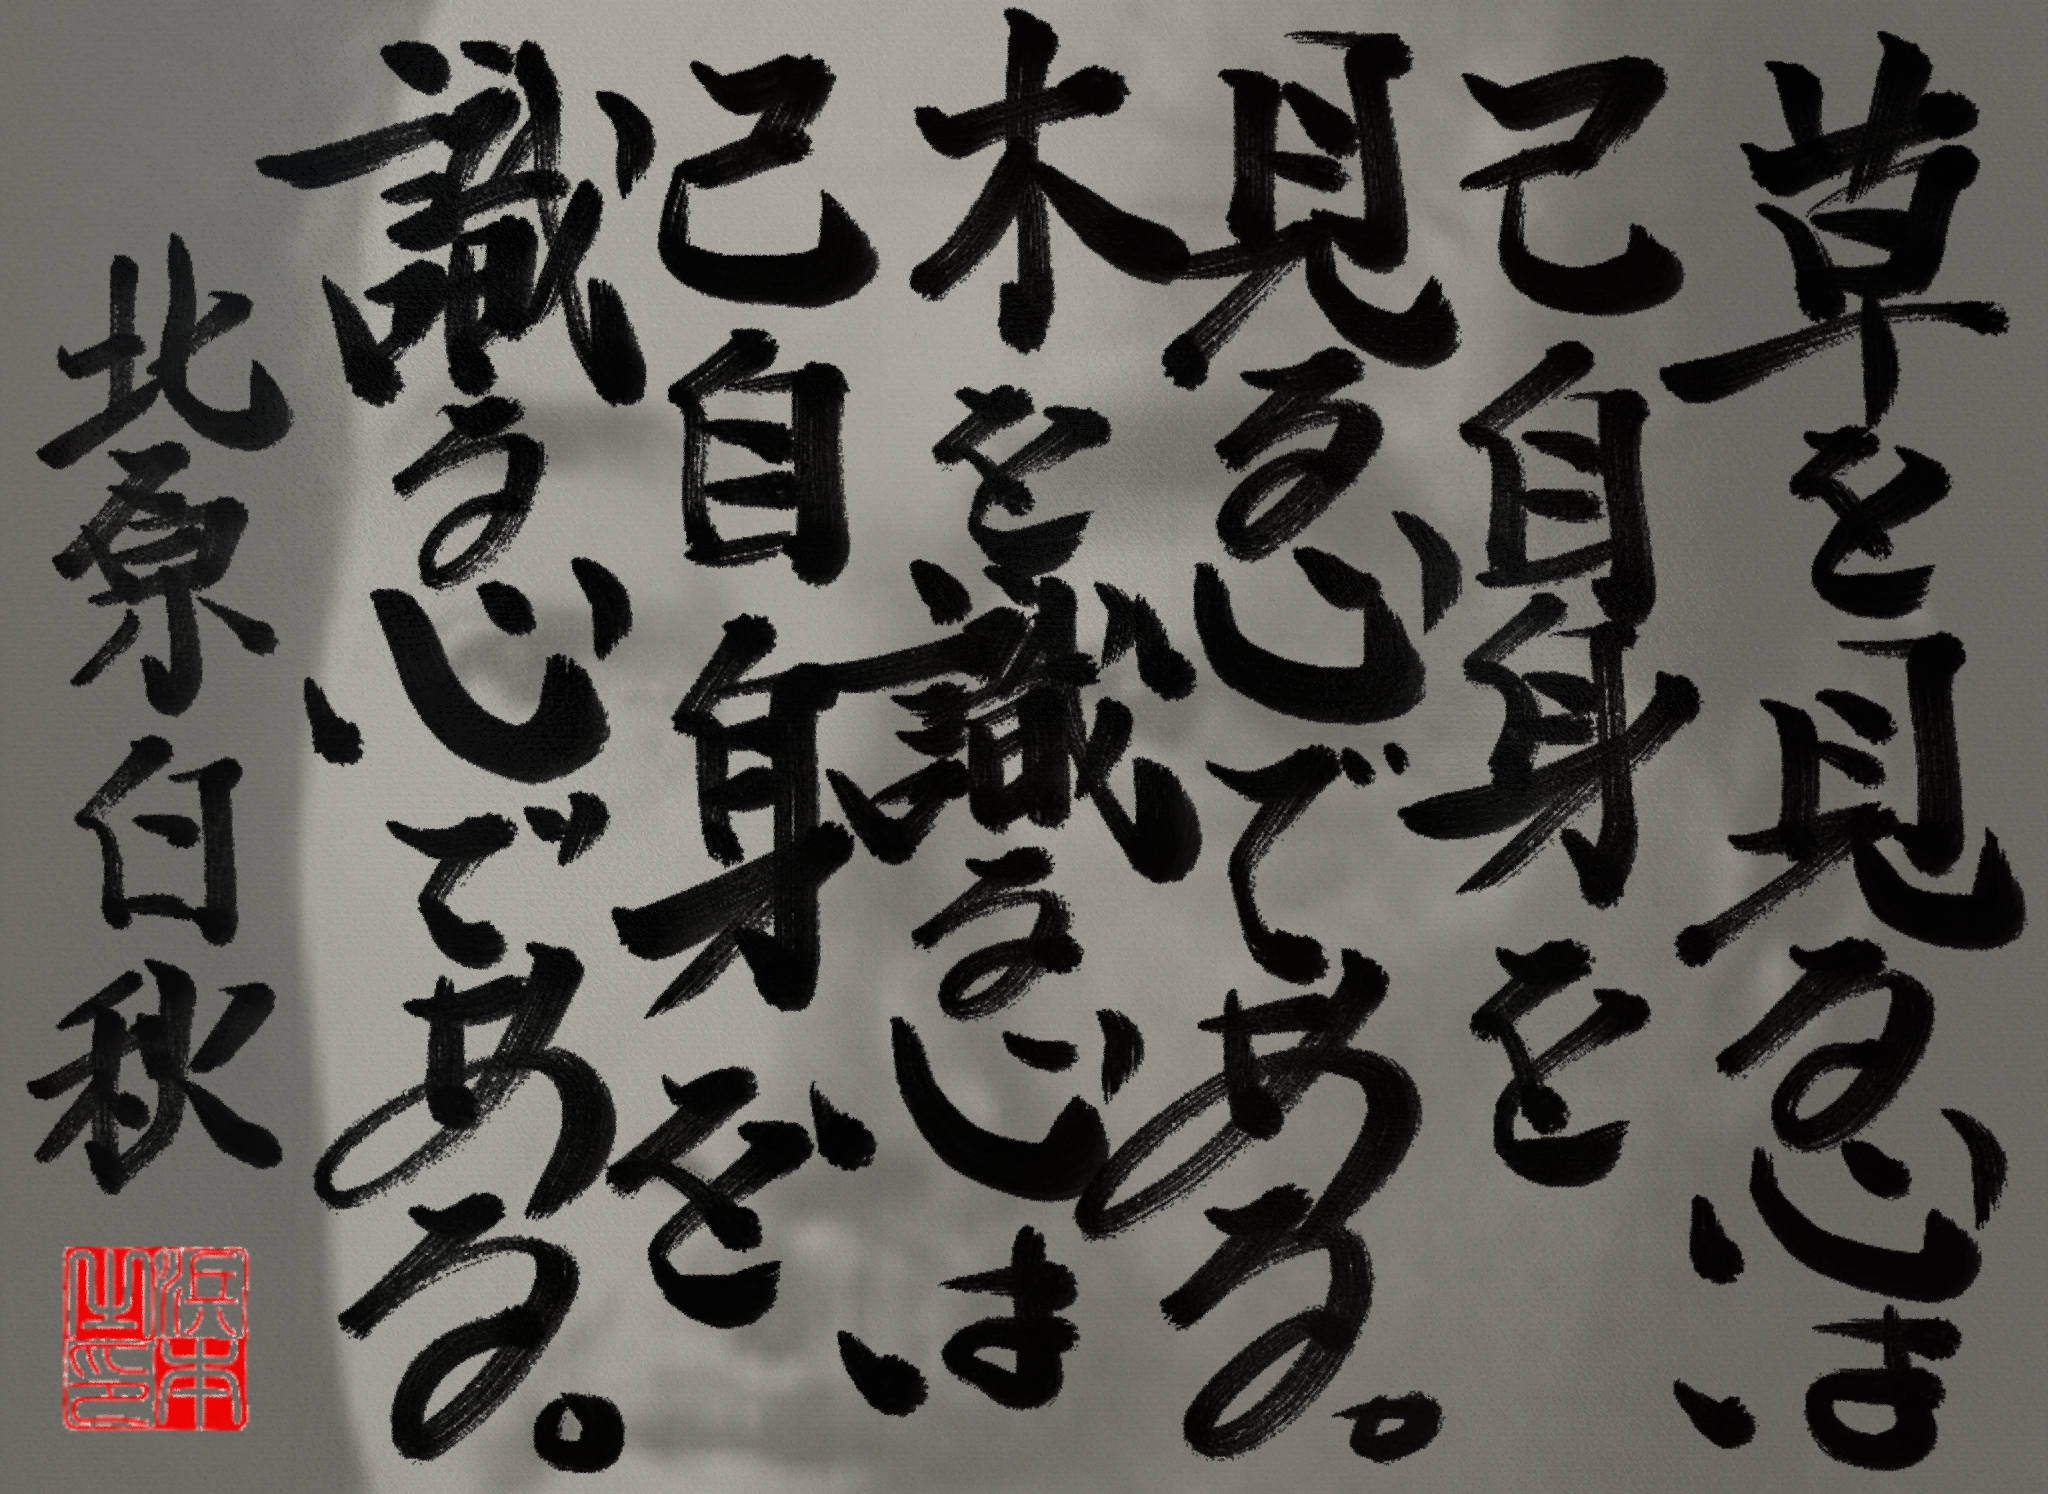 草を見る心は、
己自身を
見る心である。
木を識る心は、
己自身を
識る心である。
北原白秋
浜本之印